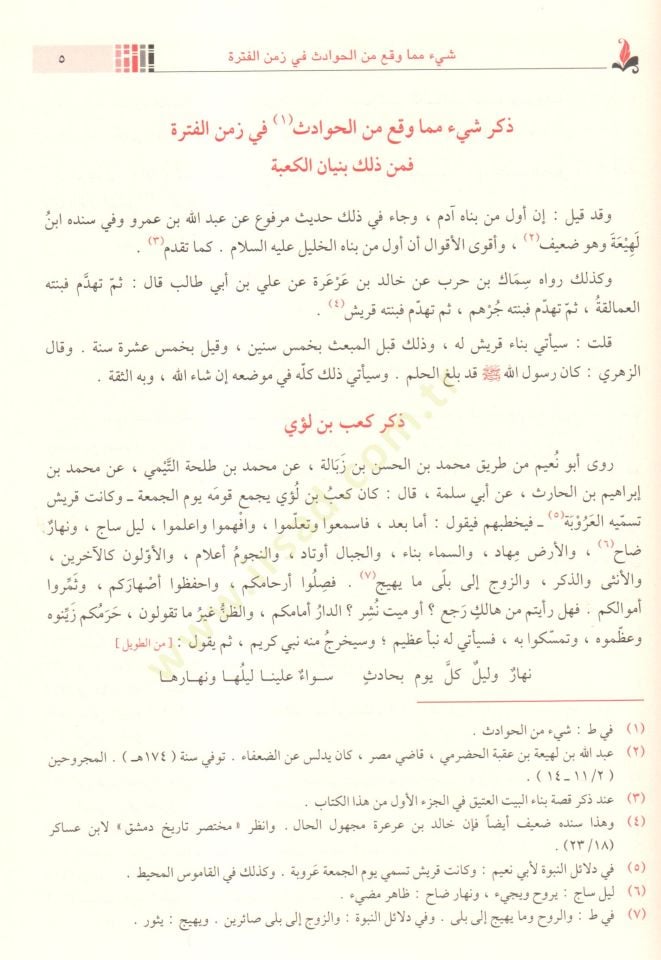 شيء مما وقع من الحوادث في زمن الفترة
٥
ذكر شيء مما وقع من الحوادث(١) في زمن الفترة
فمن ذلك بنيان الكعبة
وقد قيل : إن أول من بناه آدم ، وجاء في ذلك حديث مرفوع عن عبد الله بن عمرو وفي سنده ابنُ
لَهِيْعَةَ وهو ضعيف(٢) ، وأقوى الأقوال أن أول من بناه الخليل عليه السلام . كما تقدم(٣) .
وكذلك رواه سِمَاك بن حرب عن خالد بن عَرْعَرة عن علي بن أبي طالب قال : ثمّ تهدَّم فبنته
العمالقةُ ، ثمّ تهدّم فبنته جُرْهم ، ثم تهدّم فبنته قريش(٤) .
قلت : سيأتي بناء قريش له ، وذلك قبل المبعث بخمس سنين ، وقيل بخمس عشرة سنة . وقال
الزهري : كان رسول الله ﷺ قد بلغ الحلم . وسيأتي ذلك كلّه في موضعه إن شاء الله ، وبه الثقة .
ذكر كعب بن لؤي
روى أبو نُعيم من طريق محمد بن الحسن بن زَبَالة ، عن محمد بن طلحة التَّيْمي ، عن محمد بن
إبراهيم بن الحارث ، عن أبي سلمة ، قال : كان كعبُ بن لُؤي يجمع قومَه يوم الجمعة ـ وكانت قريش
تسمّيه العَرُوْبَة(٥) ـ فيخطبهم فيقول : أما بعد ، فاسمعوا وتعلّموا ، وافْهموا واعلموا ، ليل ساج ، ونهارٌ
ضاح(٦) ، والأرض مِهاد ، والسماء بناء ، والجبال أوتاد ، والنجومُ أعلام ، والأوّلون كالآخرين ،
والأنثى والذكر ، والزوج إلى بلًى ما يهيج(٧) . فصِلُوا أرحامكم ، واحفظوا أصْهارَكم ، وثَمِّروا
أموالكم . فهل رأيتم من هالكٍ رَجع ؟ أو ميت نُشِر ؟ الدارُ أمامكم ، والظنُّ غيرُ ما تقولون ، حَرَمُكم زَيِّنوه
وعظّموه ، وتمسّكوا به ، فسيأتي له نبأ عظيم ؛ وسيخرجُ منه نبي كريم ، ثم يقول : [ من الطويل ]
نهارٌ وليلٌ كلَّ يوم بحادثٍ سواءٌ علينا ليلُها ونهارها
(١) في ط : شيء من الحوادث .
(٢) عبد الله بن لهيعة بن عقبة الحضرمي ، قاضي مصر ، كان يدلس عن الضعفاء . توفي سنة (١٧٤هـ) . المجروحين
(٢/ ١١ ـ ١٤) .
(٣) عند ذكر قصة بناء البيت العتيق في الجزء الأول من هذا الكتاب .
(٤) وهذا سنده ضعيف أيضاً فإن خالد بن عرعرة مجهول الحال . وانظر « مختصر تاريخ دمشق » لابن عساكر
(١٨/ ٢٣) .
(٥) في دلائل النبوة لأبي نعيم : وكانت قريش تسمي يوم الجمعة عَروبة . وكذلك في القاموس المحيط .
(٦) ليل ساج : يروح ويجيء ، ونهار ضاح : ظاهر مضيء .
(٧) في ط : والروح وما يهيج إلى بلى . وفي دلائل النبوة : والزوج إلى بلى صائرين . ويهيج : يثور .